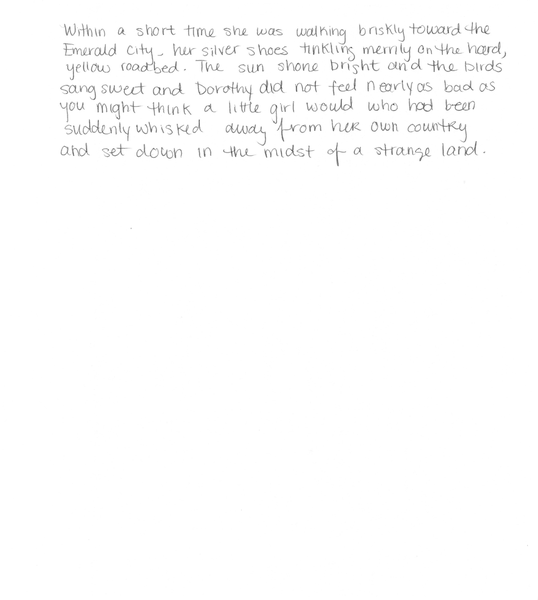 Within a short time she was walking briskly toward the
Emerald City, her silver shoes tinkling merrily on the hard,
yellow roadbed. The sun shone bright and the birds
sang sweet and Dorothy did not feel nearly as bad as
you might think a little girl would who had been
suddenly whisked away from her own country
and set down in the midst of a strange land.